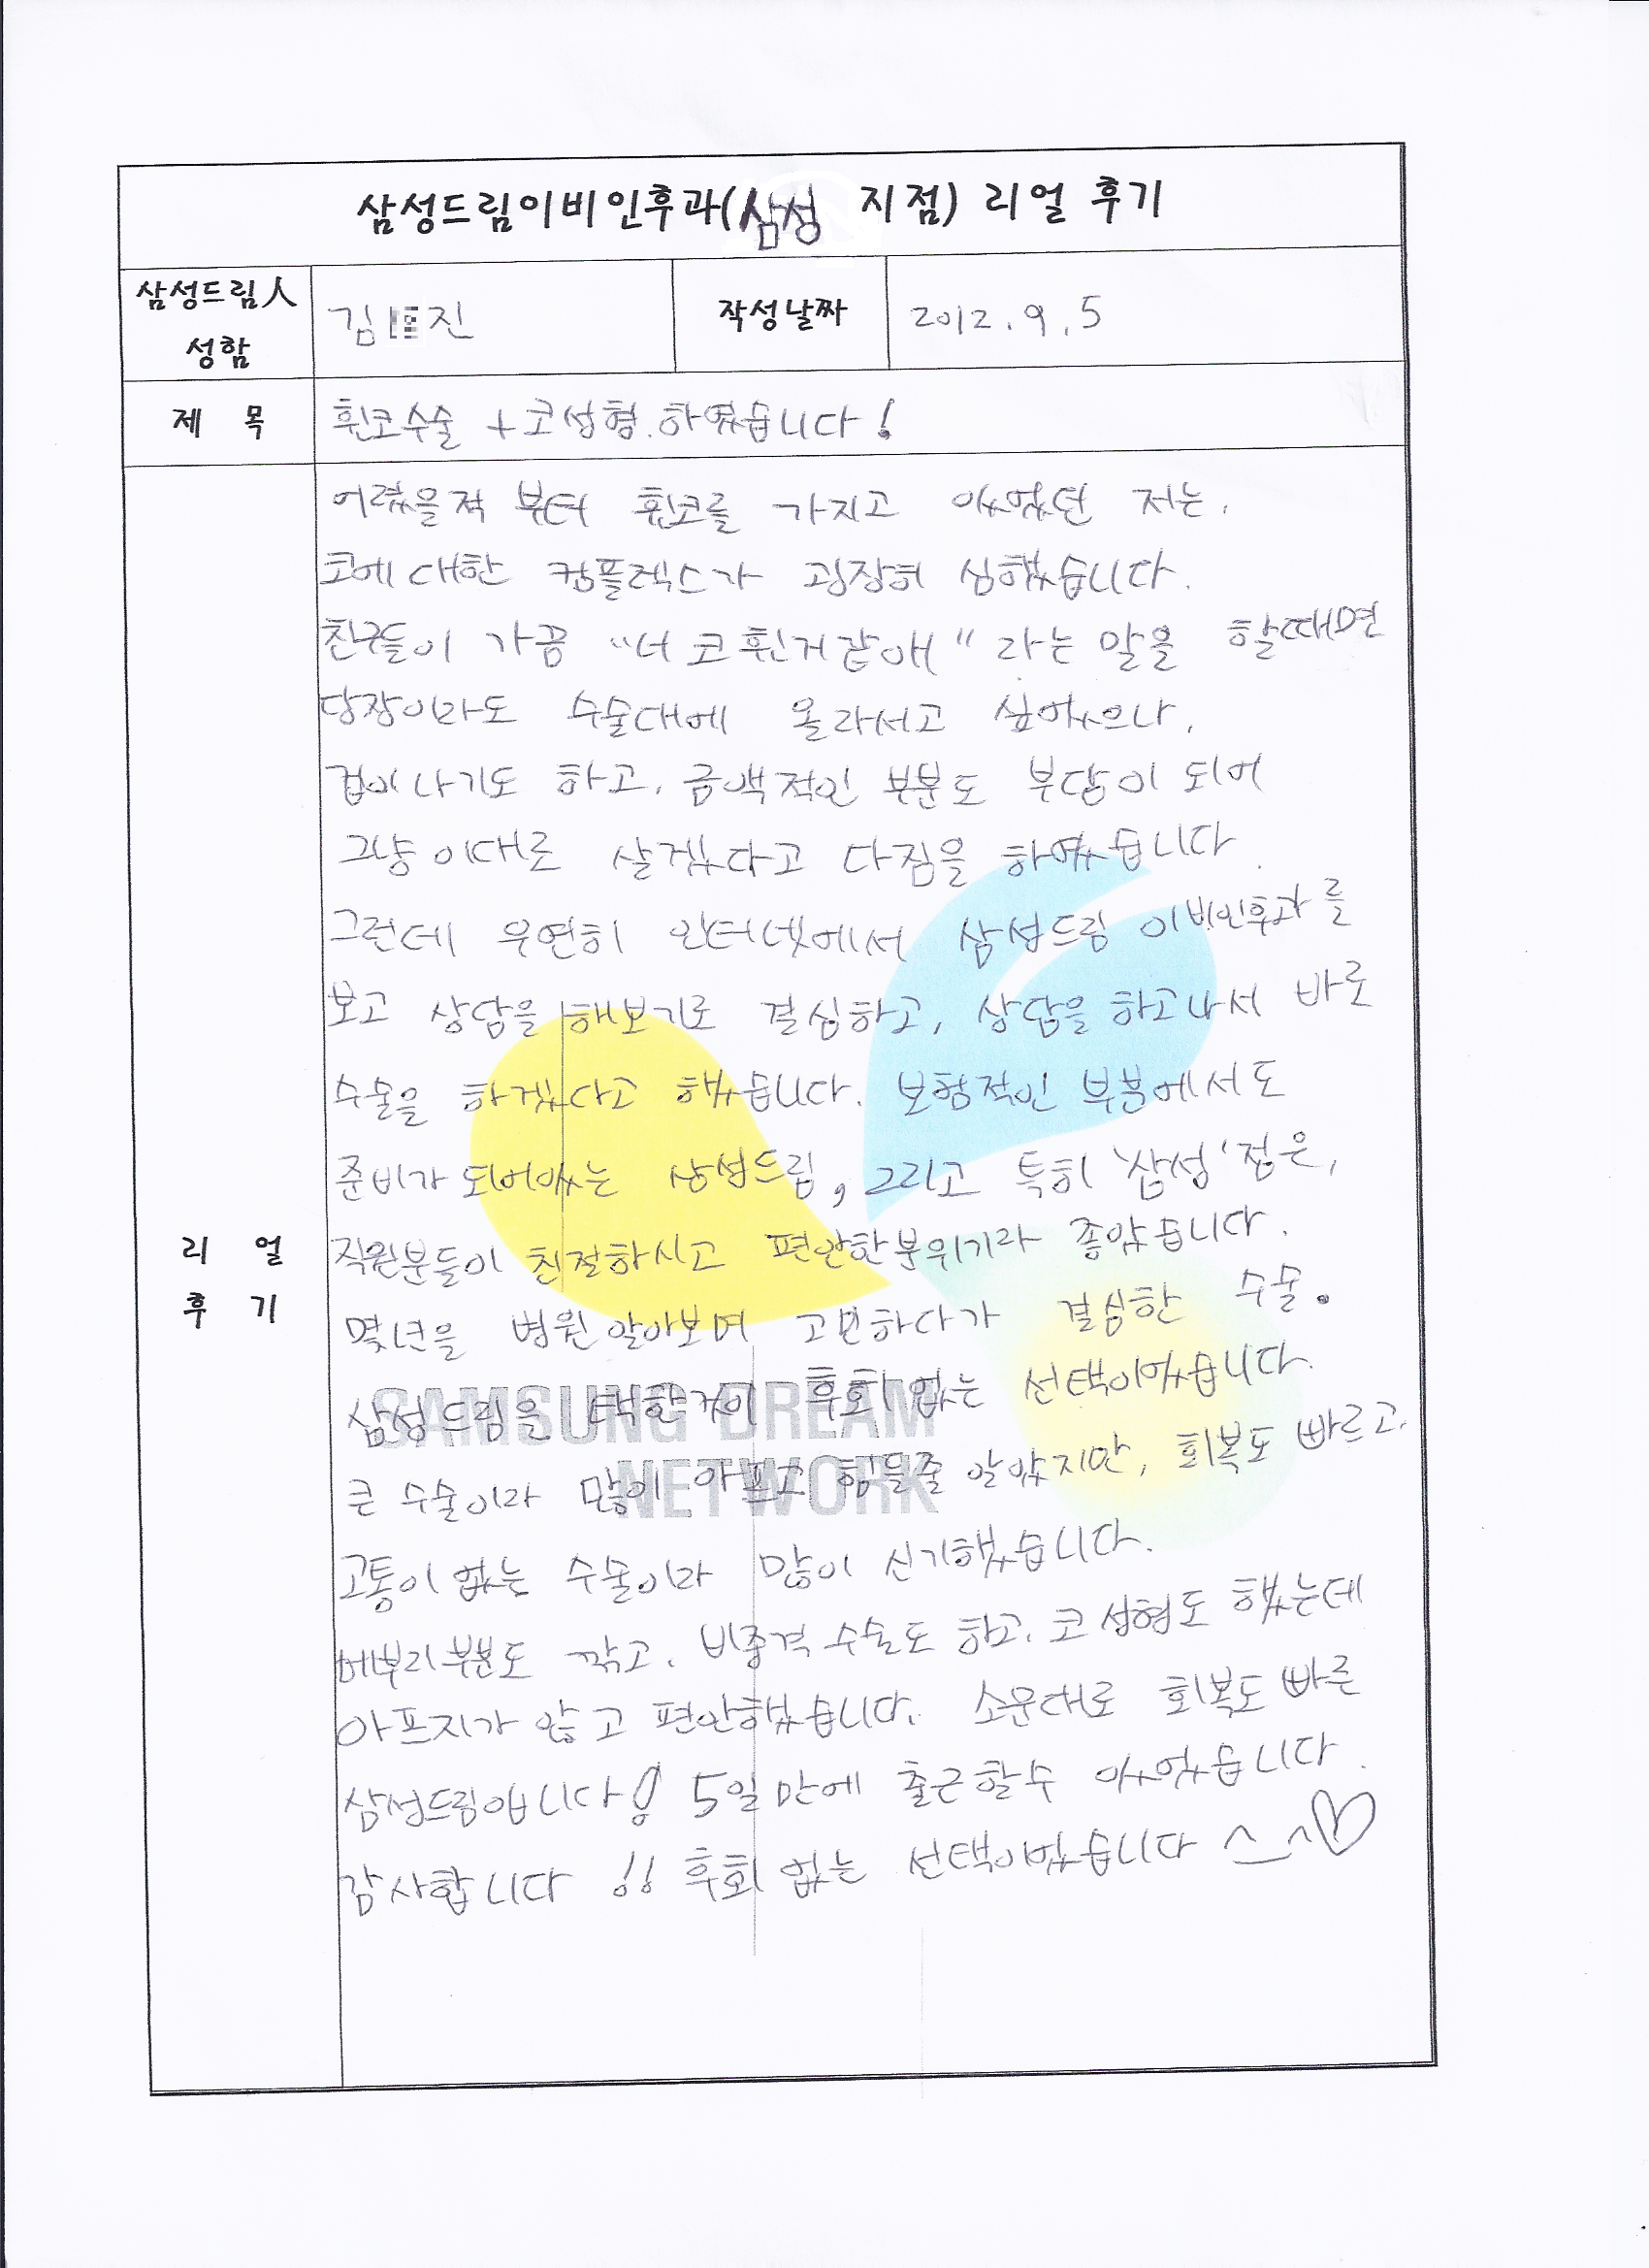 삼성드림이비인후과(삼성 지점) 리얼 후기
삼성드림人
성함
김 진
작성날짜
2012. 9. 5
제 목
휜코수술 + 코성형. 하였습니다!
어렸을적 부터 휜코를 가지고 있었던 저는,
코에 대한 컴플렉스가 굉장히 심했습니다.
친구들이 가끔 "너 코 휜거같애" 라는 말을 할때면
당장이라도 수술대에 올라서고 싶었으나,
겁이 나기도 하고, 금액적인 부분도 부담이 되어
그냥 이대로 살겠다고 다짐을 하였습니다.
그런데 우연히 인터넷에서 삼성드림 이비인후과를
보고 상담을 해보기로 결심하고, 상담을 하고나서 바로
수술을 하겠다고 했습니다. 보험적인 부분에서도
준비가 되어있는 삼성드림, 그리고 특히 '삼성'점은,
직원분들이 친절하시고 편안한분위기라 좋았습니다.
몇년을 병원 알아보며 고민하다가 결심한 수술.
삼성드림을 택한거이 후회 없는 선택이었습니다.
큰 수술이라 많이 아프고 힘들줄 알았지만, 회복도 빠르고.
고통이 없는 수술이라 많이 신기했습니다.
메부리부분도 깎고, 비중격 수술도 하고, 코 성형도 했는데
아프지가 않고 편안했습니다. 소문대로 회복도 빠른
삼성드림입니다! 5일만에 출근할수 있었습니다.
감사합니다 !! 후회 없는 선택이었습니다 ^_^♡
리 얼
후 기
SAMSUNG DREAM
NETWORK